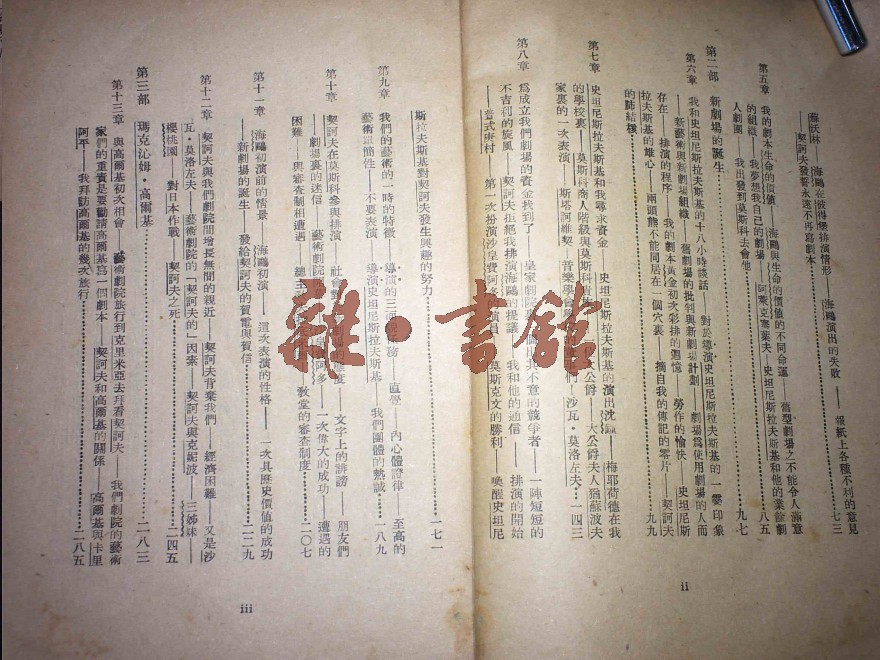 蘇沃林——海鷗在彼得堡排演情形——海鷗演出的失敗——報紙上各種不利的意見
——契訶夫發誓永遠不再寫劇本……七三
第五章 我的劇本生命的價值——海鷗與生命的價值的不同命運——舊型劇場之不能令人滿意
的組織——我夢想我自己的劇場——阿萊克塞葉夫·史坦尼斯拉夫斯基和他的業餘劇
人劇團——我出發到莫斯科去會他……八五
第二部 新劇場的誕生……九七
第六章 我和史坦尼斯拉夫斯基的十八小時談話——對於導演史坦尼斯拉夫斯基的一霎印象
——新藝術與新劇場組織——舊劇場的批判與新劇場計劃——劇場爲使用劇場的人而
存在——排演的程序——我的劇本黃金初次彩排的迴憶——勞作的愉快——史坦尼斯
拉夫斯基的雄心——兩頭熊不能同居在一個穴裏——摘自我的傳記的零片——契訶夫
的肺結核……九九
第七章 史坦尼斯拉夫斯基和我尋求資金——史坦尼斯拉夫斯基的演出沈鐘——梅耶荷德在我
的學校裏——莫斯科商人階級與莫斯科的大公爵——大公爵夫人猶蘇波夫
家裏的一次演——斯塔阿維契——音樂學會——沙瓦·莫洛左夫……一四三
第八章 爲成立我們劇場的資金找到了——皇家劇院裏出其不意的競爭者——一陣短短的
不吉利的旋風——契訶夫拒絕我排演海鷗的提議——我和他的通信——排演的開始
——普式庚村——第一次扮演沙皇費阿多的演員——莫斯克文的勝利——喚醒史坦尼
斯拉夫斯基對契訶夫發生興趣的努力……一七一
ii
第九章 我們的藝術的一時的特徵——導演的三面任務——直覺——內心體證律——至高的
藝術單簡性——不要表演——導演史坦尼斯拉夫斯基——我們團體的熱誠……一八九
第十章 契訶夫在莫斯科參與排演——社會對的態度——文字上的誹謗——朋友們
——劇場裏的迷信——藝術劇院——一次偉大的成功——遭遇的
困難——與審查制相遭遇——總主——教堂的審查制度……二〇七
第十一章 海鷗初演前的情景——海鷗初演——這次表演的性格——一次具歷史價值的成功
——新劇場的誕生——發給契訶夫的賀電與賀信……二二九
第十二章 契訶夫與我們劇院間增長無間的親近——契訶夫背棄我們——經濟困難——又是沙
瓦·莫洛左夫——藝術劇院的「契訶夫的」因素——契訶夫與克妮波——三姊妹——
櫻桃園——對日本作戰——契訶夫之死……二四五
第三部 瑪克沁姆·高爾基……二八三
第十三章 與高爾基初次相會——藝術劇院旅行到克里米亞去拜看契訶夫——我們劇院的藝術
家們的重責是要勸請高爾基寫一個劇本——契訶夫和高爾基的關係——高爾基與卡里
阿平——我拜訪高爾基的幾次旅行……二八五
iii
雜·書館